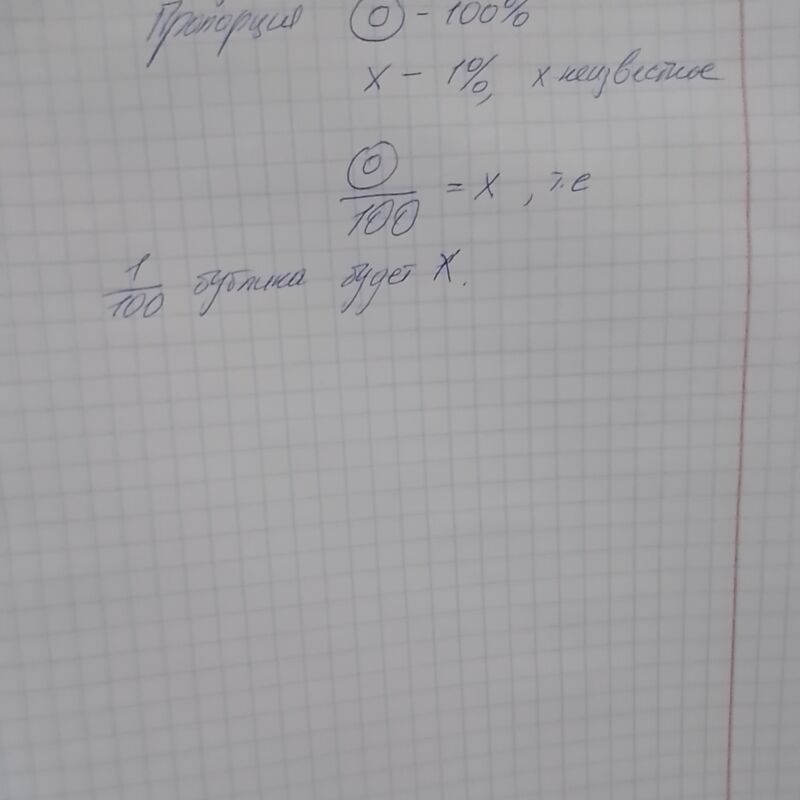 Пропорция ⓞ - 100%
x - 1%, x неизвестное
ⓞ/100 = x, т.е
1/100 бублика будет x.